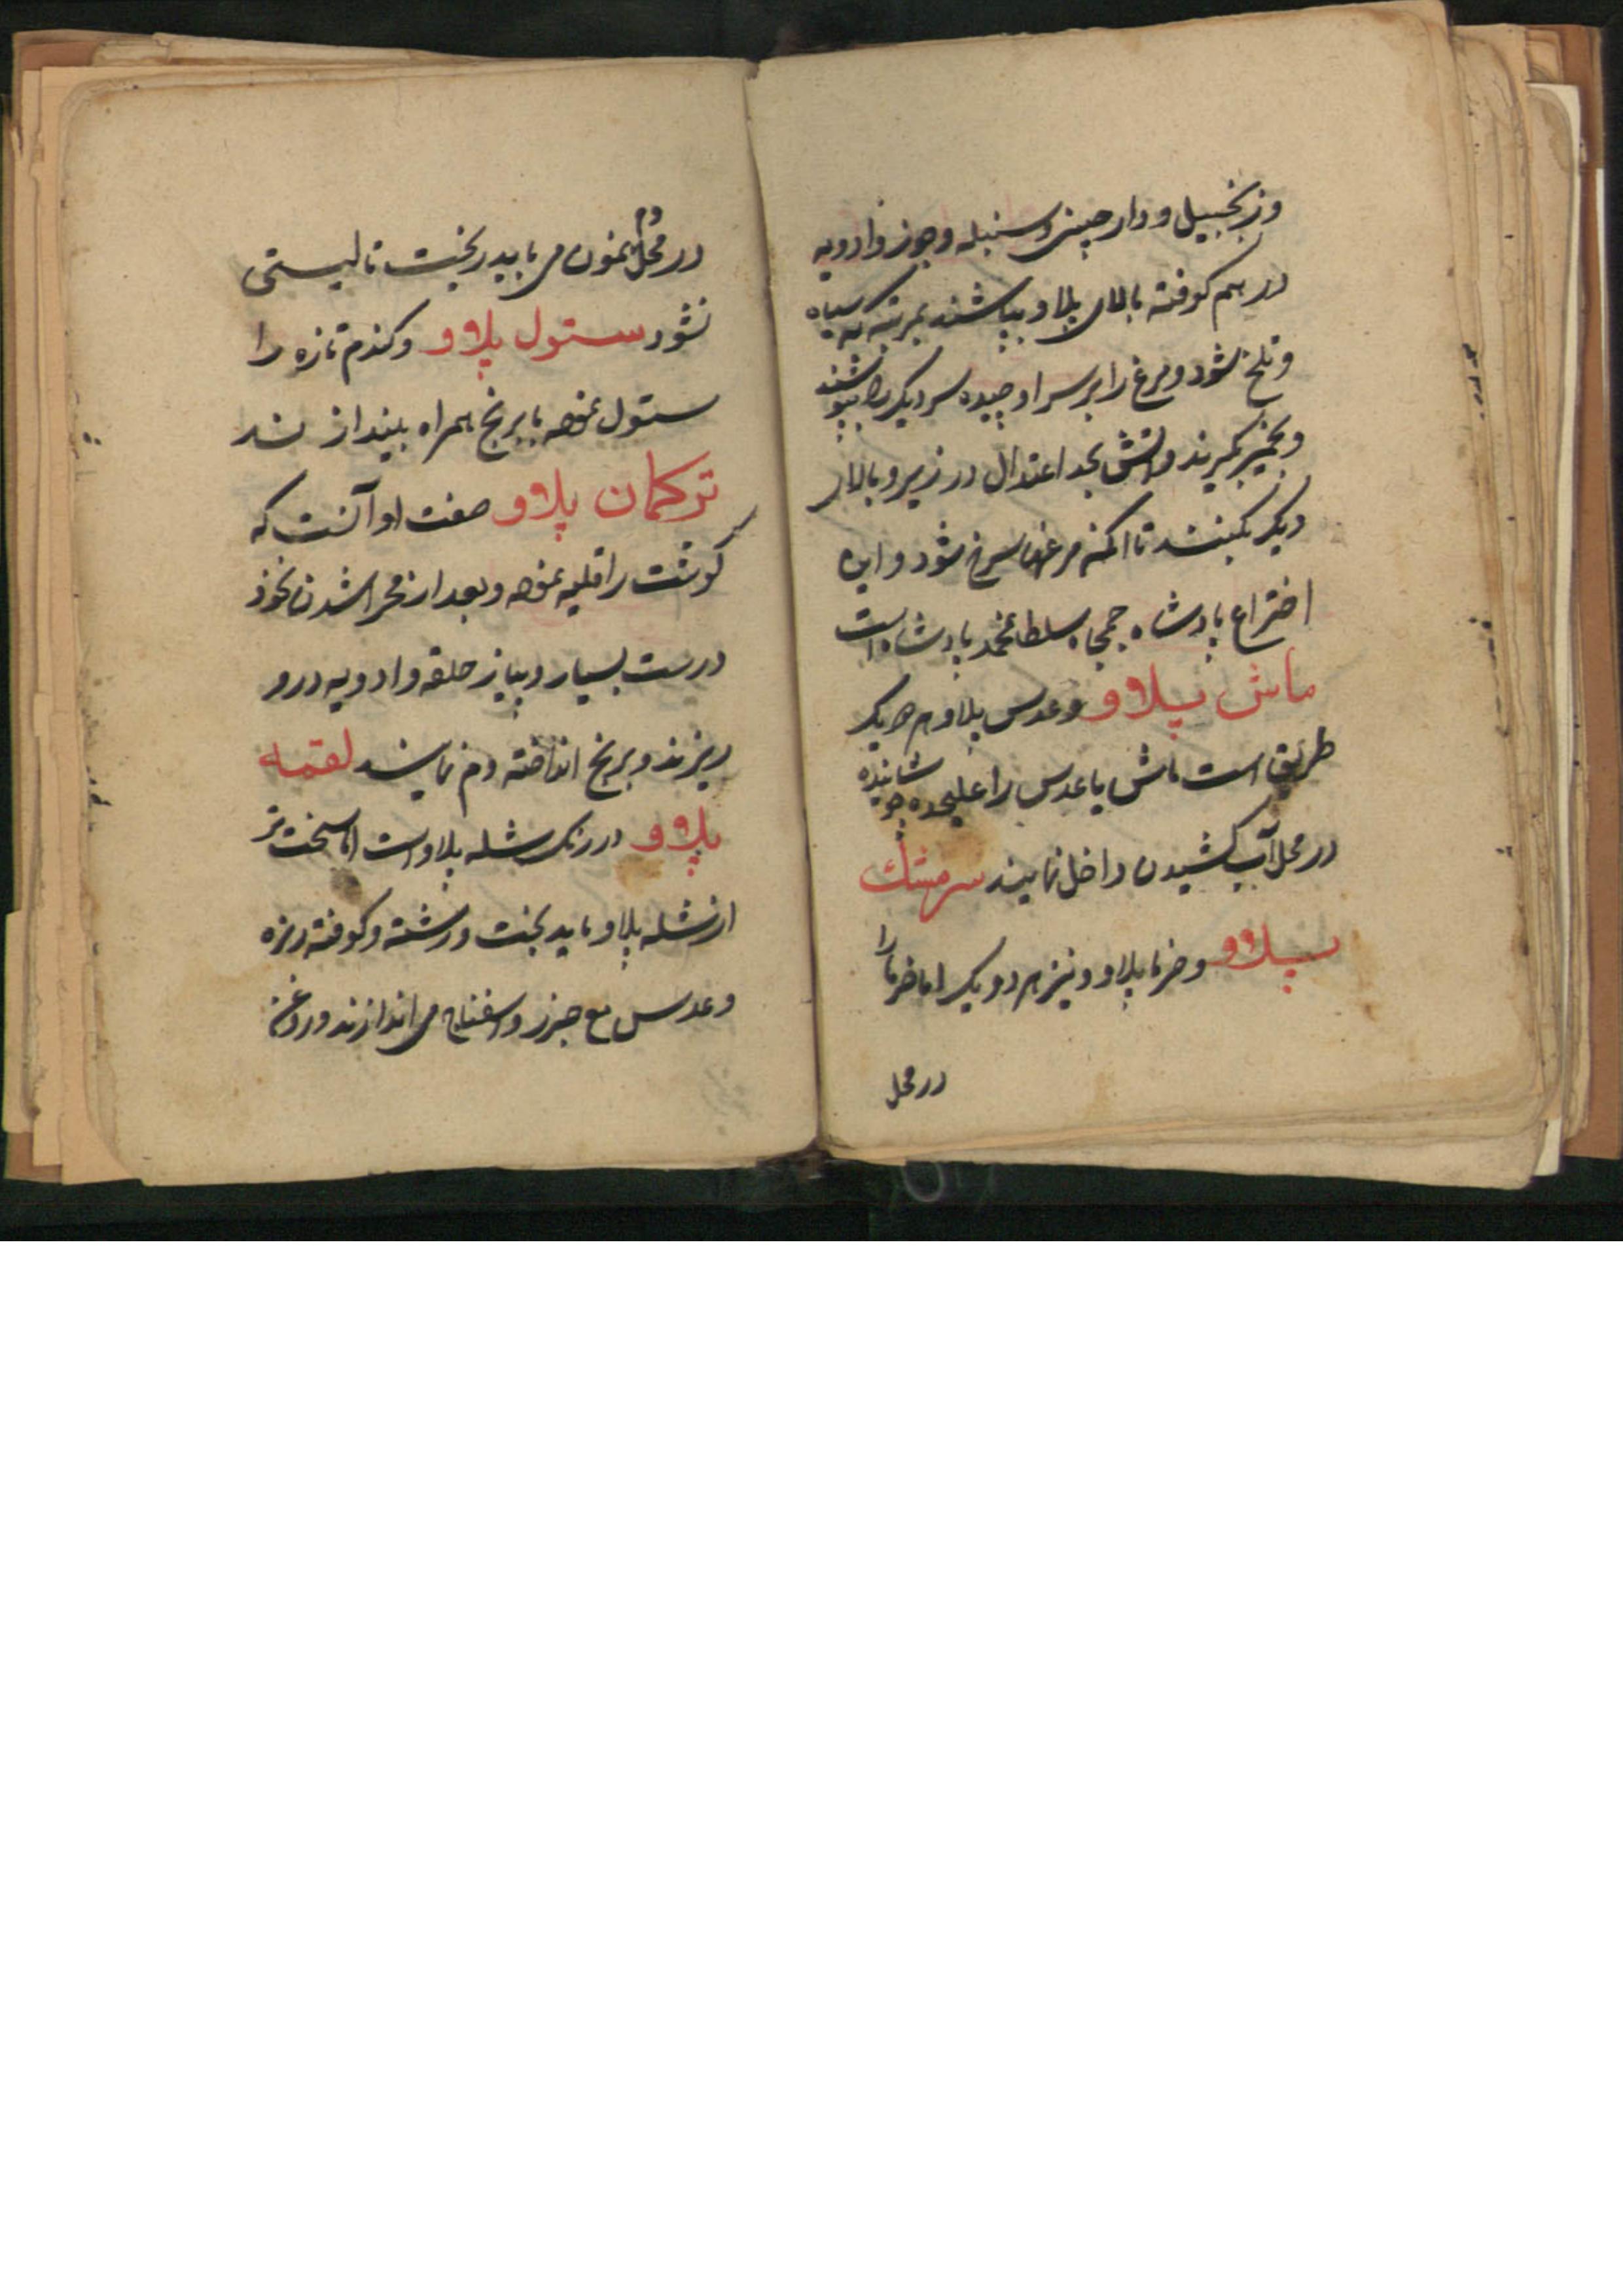 وزنجبیل و دارچینی و سنبله و جوز و ادویه
در هم کوفته بالای پلاو بپاشند بمرتبه که سیاه
و تلخ شود و مرغ را بر سر او چیده سر دیک را بپوشند
و بخمیر بگیرند و اتش بحد اعتدال در زیر و بالای
دیک بکنند تا انکه مرغها سرخ شود و این
اختراع پادشاه جمجاه سلطانمحمد پادشاه است
ماش پلاو و عدس پلاو هم هر یک
طریق است ماش یا عدس را علیحده جوشانیده
در محل آب کشیدن داخل نمایند سرمشک
پلاو و خرما پلاو و نیز هم دو یک اما خرما را
در محل
در محل دم نمودن می باید ریخت تا لیستی
نشود ستول پلاو و کندم تازه را
ستول نموده با برنج همراه بیندازند
ترکمان پلاو صفت او آنست که
کوشت را قلیه نموده و بعد از مجرا شدن نخود
درست بسیار و پیاز حلقه و ادویه درو
ریزند و برنج انداخته دم نمایند لقمه
پلاو در رنک شله پلاو است اما سخت تر
از شله پلاو باید پخت و رشته و کوفته ریزه
و عدس مع جزر و اسفناج می اندازند و روغن